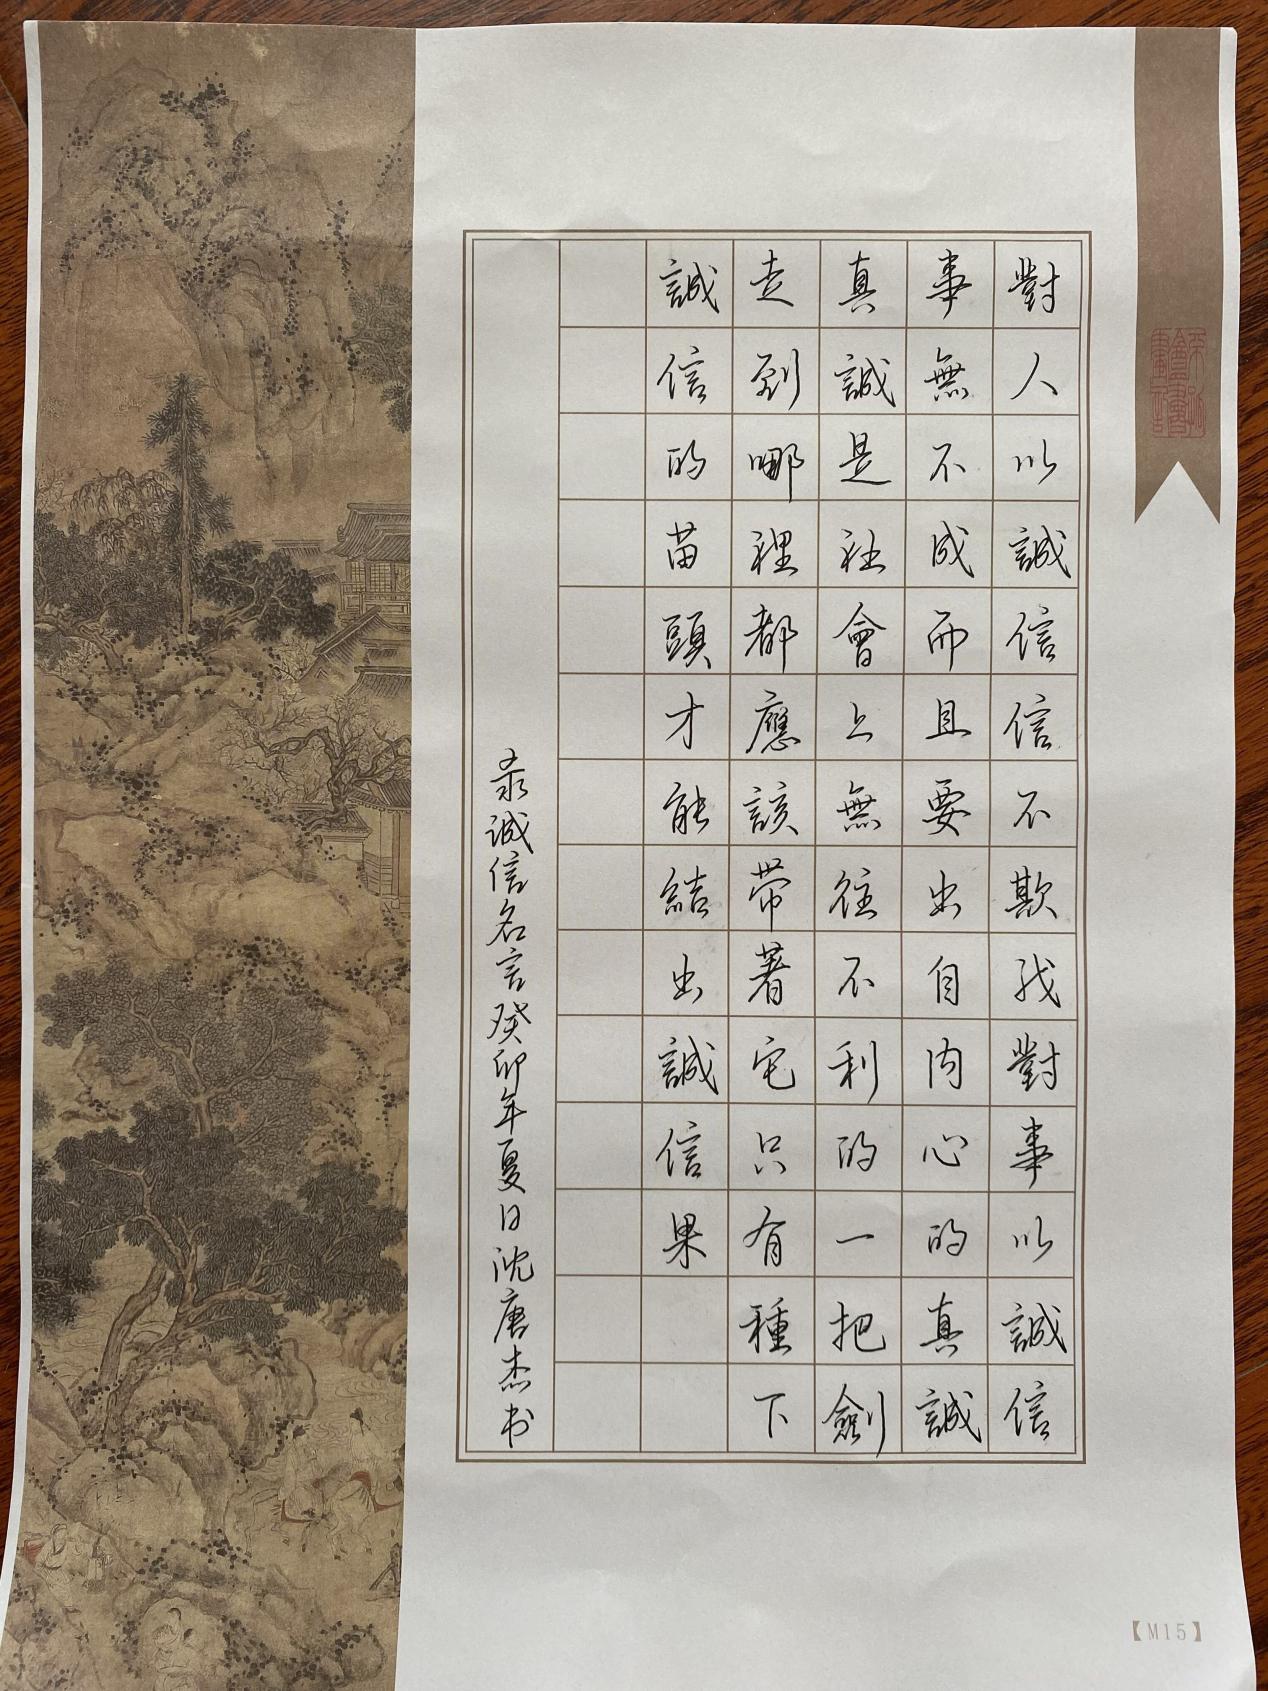 對人以誠信信不欺我對事以誠信
事無不成而且要出自内心的真誠
真誠是社會上無往不利的一把劍
走到哪裡都應該带著它只有種下
誠信的苗頭才能結出誠信果
录诚信名言癸卯年夏日沈唐杰书
【M15】